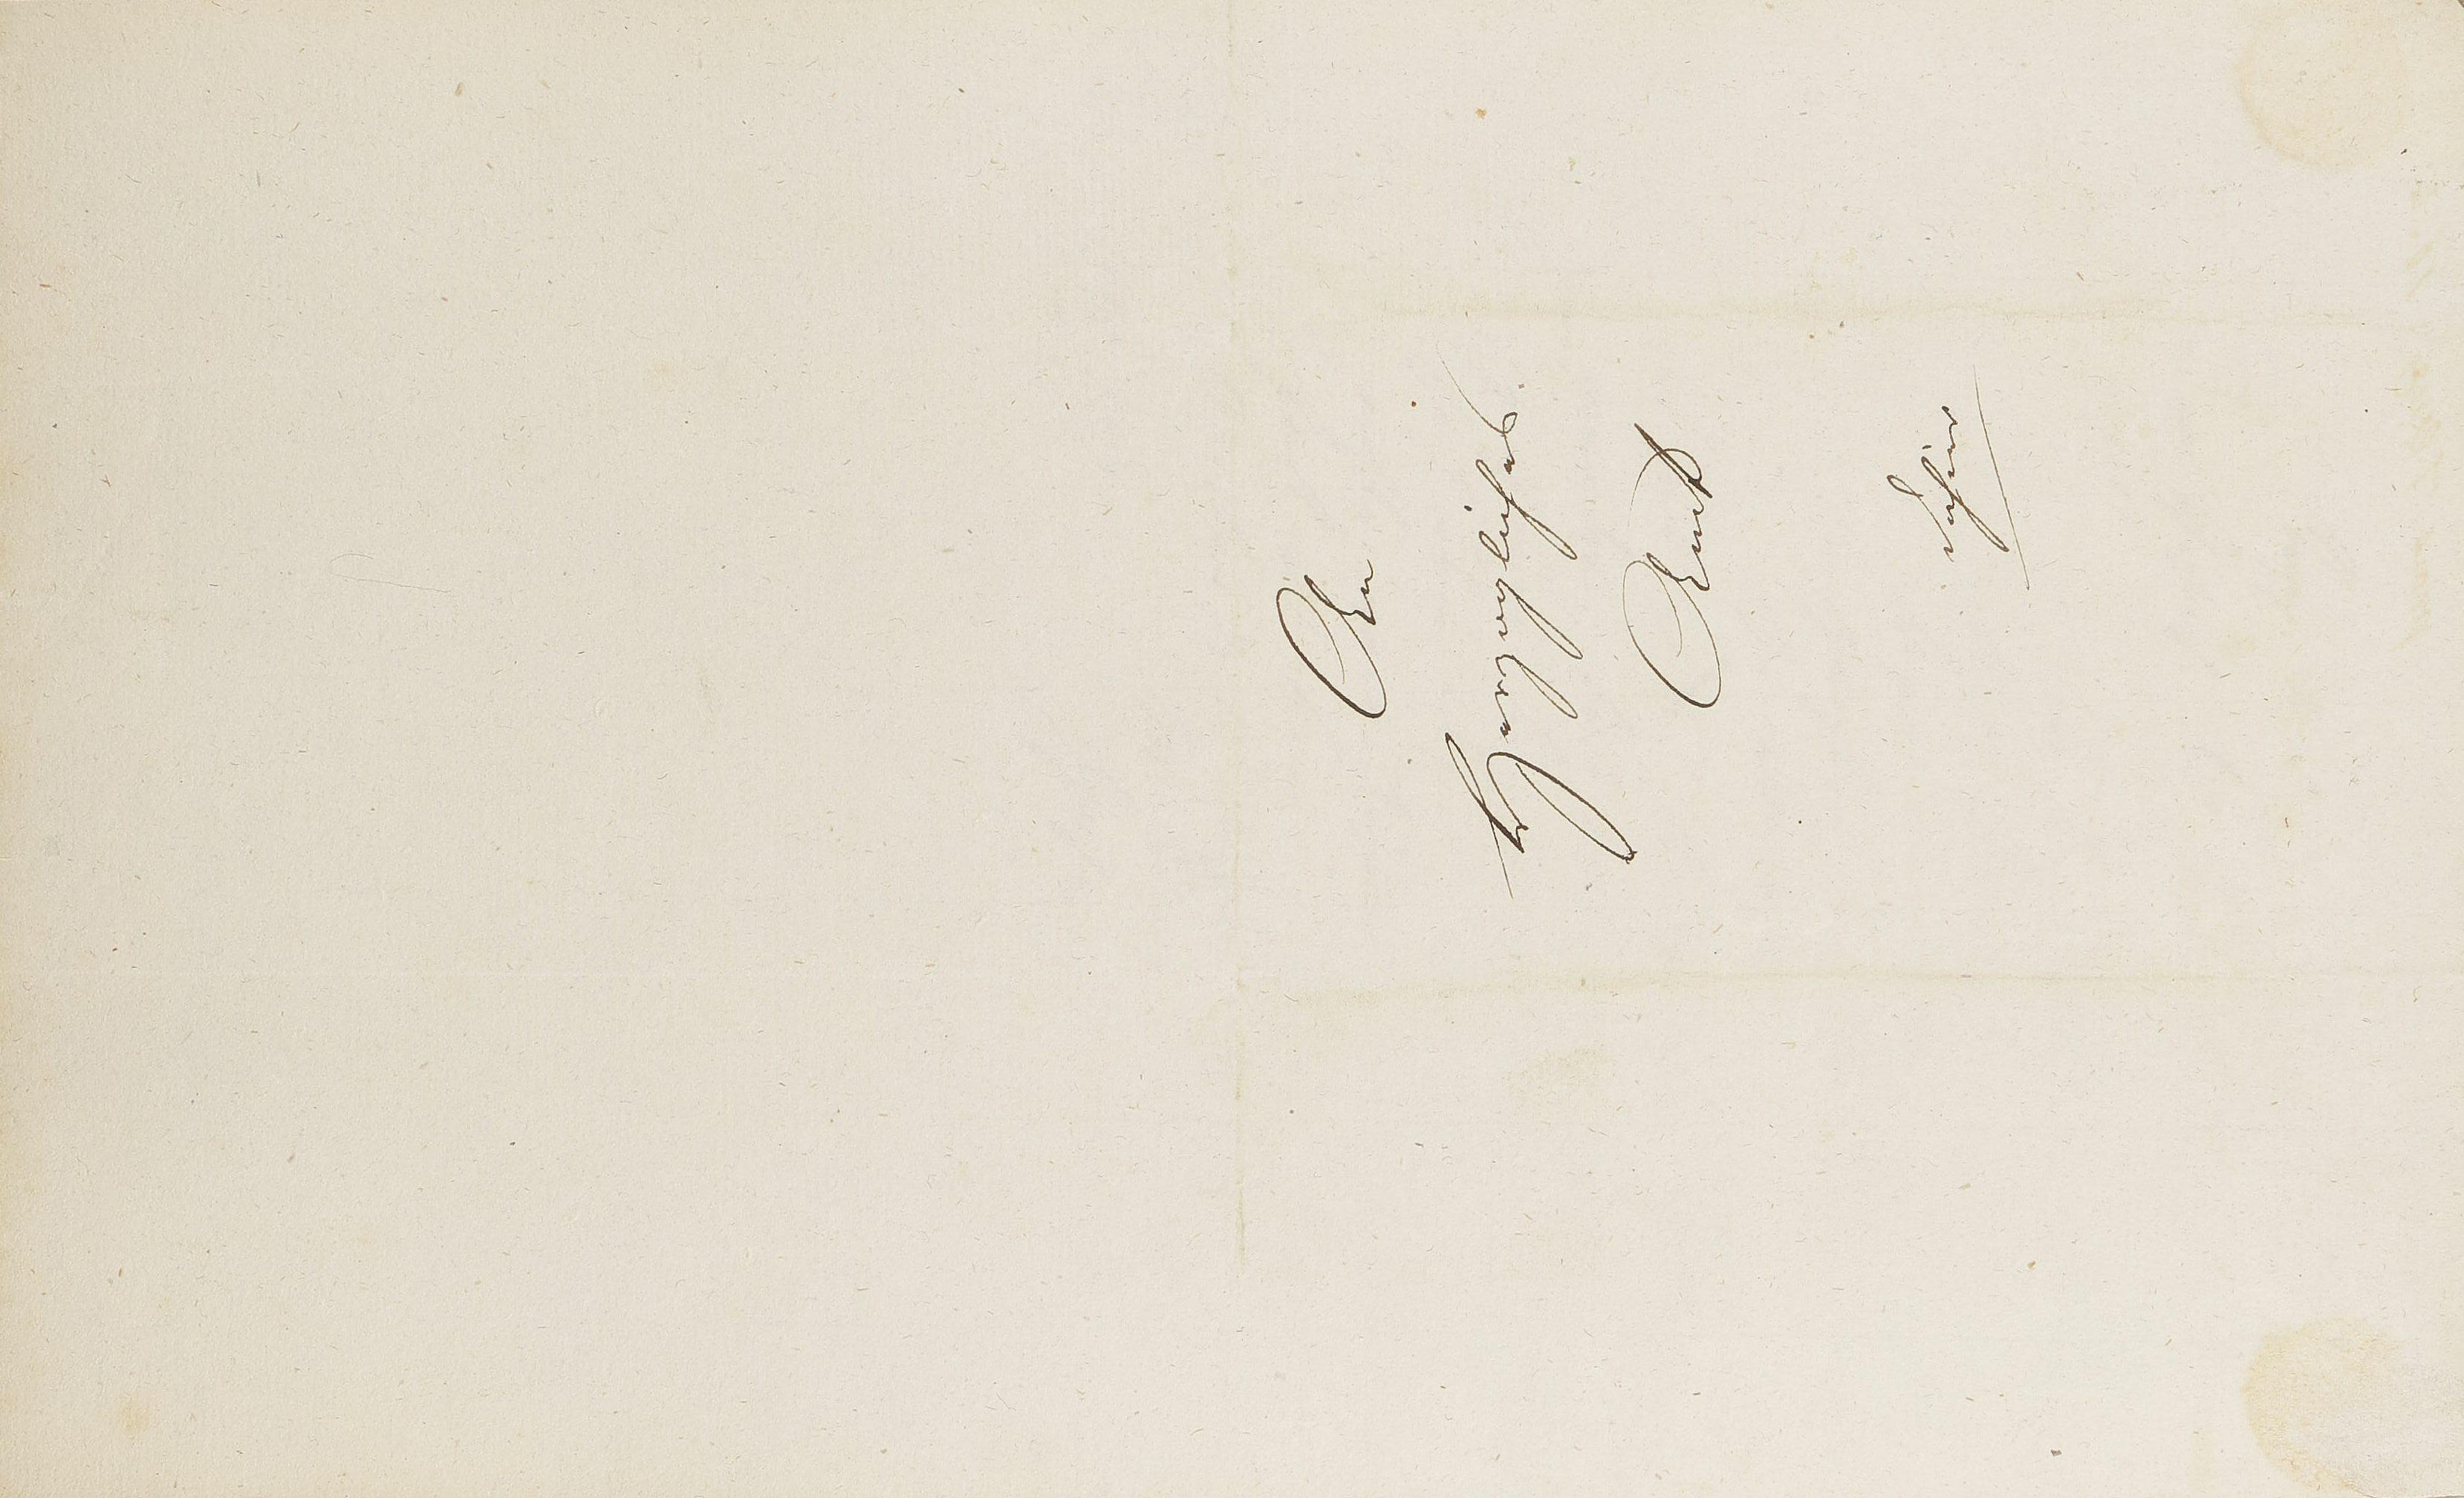 An
Herzogliches
Amt
dahier